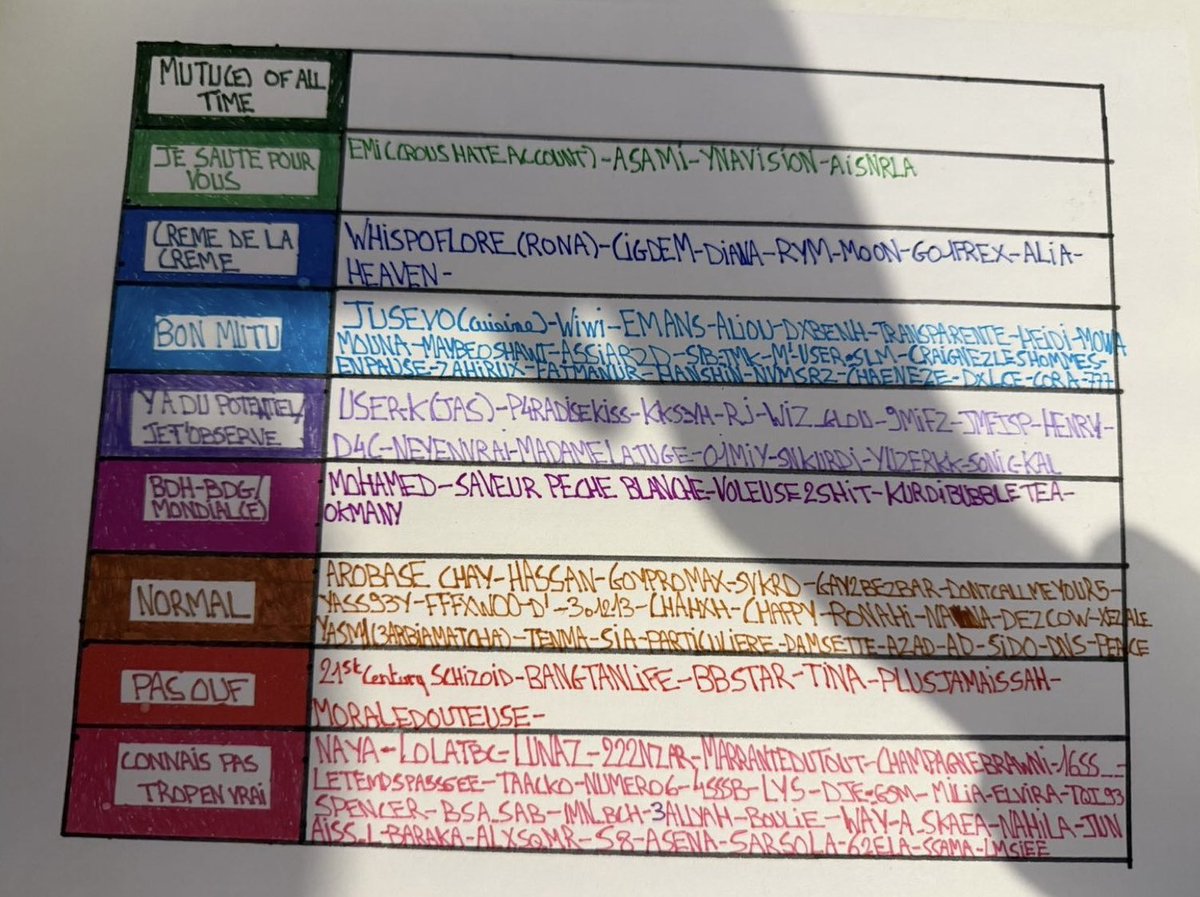 MUTU(E) OF ALL
TIME
JE SAUTE POUR
VOUS
EMI(CROUS HATE ACCOUNT) - ASAMI - YNAVISION - AISNRLA
CREME DE LA
CREME
WHISPOFLORE (RONA) - CIGDEM - DIANA - RYM - MOON - GOJFREX - ALIA -
HEAVEN -
BON MUTU
JUSEVO (cuisine) - WIWI - EMANS - ALIOU - DXBENH - TRANSPARENTE - HEIDI - MOWA
MOUNA - MAYBEDSHAWT - ASSIAR2D - SIB-TMK - M-USER-SLM - CRAIGNEZLESHOMMES -
ENPAUSE - ZAHIRUX - FATMANUR - HANSHIN - NVMSRZ - CHAENEZE - DXLCE - CORA - 777
Y A DU POTENTIEL/
JE T'OBSERVE
USER-K (JAS) - P4RADISEKISS - KKSBYH - RJ - WIZ_GLOU - 9MIFZ - JMFJSP - HENRY -
D4C - NEYENVRAI - MADAME LA JUGE - O1MIY - SNKURDI - YUZERKK - SONIC - KAL
BDH-BDG/
MONDIAL(E)
MOHAMED - SAVEUR PECHE BLANCHE - VOLEUSE2SHIT - KURDIBUBBLETEA -
OKMANY
NORMAL
AROBASE CHAY - HASSAN - GOYPROMAX - SVKRD - GAY2BEZBAR - DONTCALLMEYOURS -
YASS93Y - FFFXWOO - D' - 301213 - CHAHXH - CHAPPY - RONAHI - DEZCOW - XEZALE
YASMI (3ARBIAMATCHA) - TENMA - SIA - PARTICULIERE - DAMSETTE - AZAD - AD - SIDO - DNS - PENCE
PAS OUF
21st Century SCHIZOID - BANGTANLIFE - BBSTAR - TINA - PLUSJAMAISSAH -
MORALEDOUTEUSE -
CONNAIS PAS
TROP EN VRAI
NAYA - LOLATBC - LUNAZ - 222NZAR - MARRANTEDUTOUT - CHAMPAGNEBRAWNI - 16SS__ -
LETEMDSPASSGEE - TAACKO - NUMERO6 - 4SSSB - LYS - DJE-GSM - MILIA - ELVIRA - TQI93
SPENCER - BSA_SAB - IMNLBCH - 3ALLYAH - BOULIE - WAY-A_SKAEA - NAHILA - JUN
AISS_I - BARAKA - ALXSQMR - S8 - ASENA - SARSOLA - 62ELA - SSAMA - LMSIEE